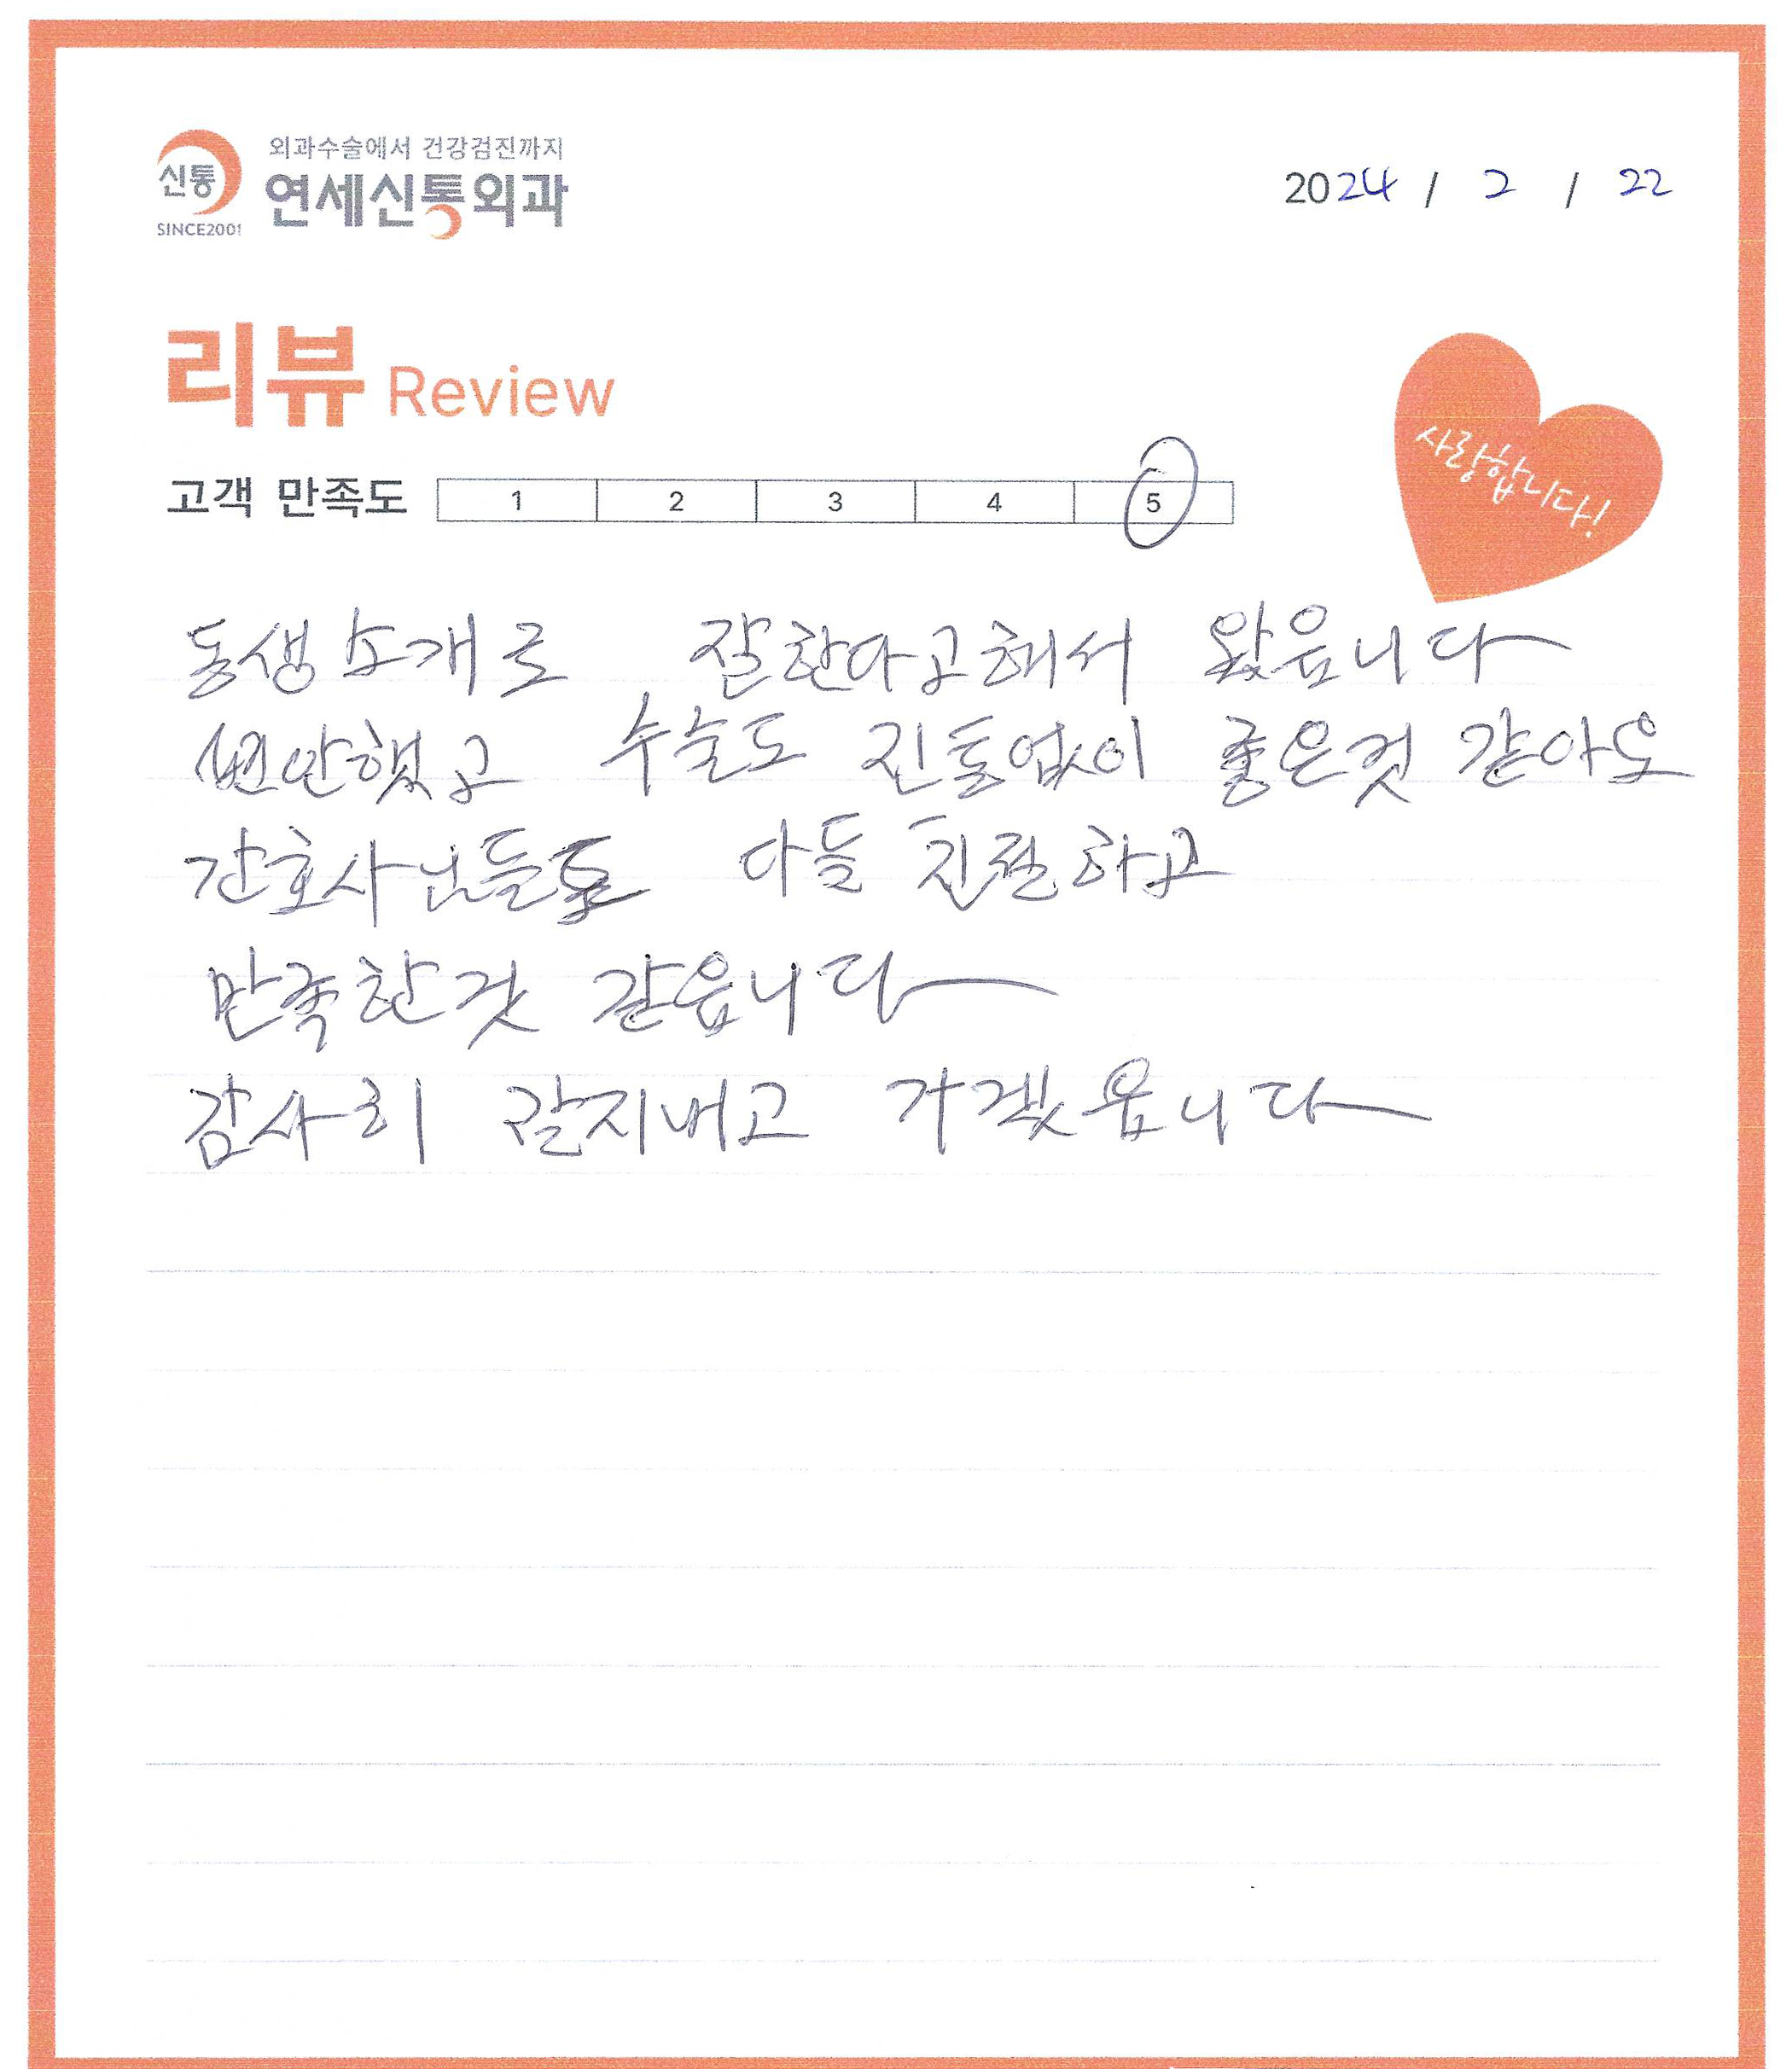 외과수술에서 건강검진까지
신통 연세신통외과
SINCE2001
2024 / 2 / 22
리뷰 Review
사랑합니다!
고객 만족도 1 2 3 4 5
동생소개로 잘한다고해서 왔읍니다
변안했고 수술도 진통없이 좋은것 같아요
간호사님들도 다들 친절하고
만족한것 같읍니다
감사히 잘지내고 가겠읍니다